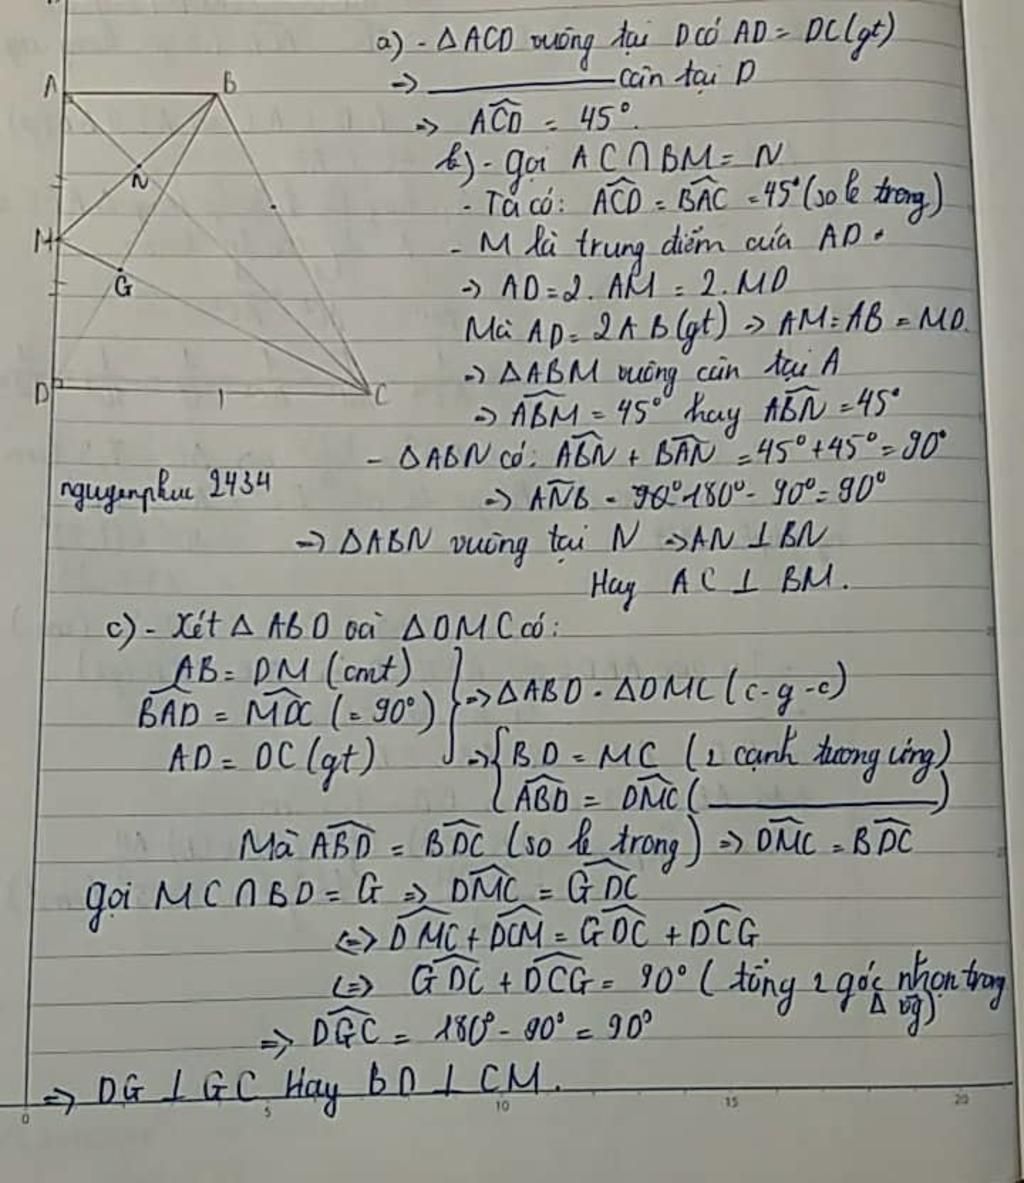 a) - ΔACD vuông tại D có AD = DC (gt)
=> ________ cân tại D
=> ACD = 45°.
b) - gọi AC ∩ BM = N
- Ta có: ACD = BAC = 45° (so le trong)
- M là trung điểm của AD.
=> AD = 2.AM = 2.MD
Mà AD = 2AB (gt) => AM = AB = MD.
=> ΔABM vuông cân tại A
=> ABM = 45° hay ABN = 45°
- ΔABN có: ABN + BAN = 45° + 45° = 90°
=> ANB = 180° - 90° = 90°
=> ΔABN vuông tại N => AN ⊥ BN
Hay AC ⊥ BM.
A B
N
M
G
D C
nguyenphuc 2434
c) - Xét ΔABD và ΔDMC có:
AB = DM (cmt)
BAD = MDC (= 90°)
AD = DC (gt)
=> ΔABD = ΔDMC (c-g-c)
=> BD = MC (2 cạnh tương ứng)
ABD = DMC (________)
Mà ABD = BDC (so le trong) => DMC = BDC
gọi MC ∩ BD = G => DMC = GDC
<=> DMC + DCM = GDC + DCG
<=> GDC + DCG = 90° (tổng 2 góc nhọn trong
Δ vg)
=> DGC = 180° - 90° = 90°
=> DG ⊥ GC Hay BD ⊥ CM.
0 5 10 15 20